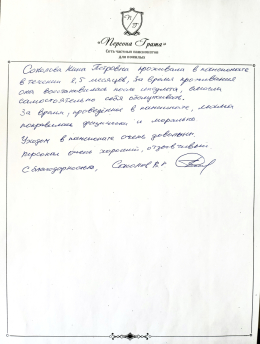 П Г
«Персона Грата»
Сеть частных пансионатов
для пожилых
Соколова Нина Петровна проживала в пансионате
в течении 8,5 месяцев, За время проживания
она восстановилась после инсульта, смогла
самостоятельно себя обслуживать.
За время, проведённое в пансионате, мама
поправилась физически и морально
Уходом в пансионате очень довольны
персонал очень хороший, отзывчивый
С благодарностью, Соколов В.Г